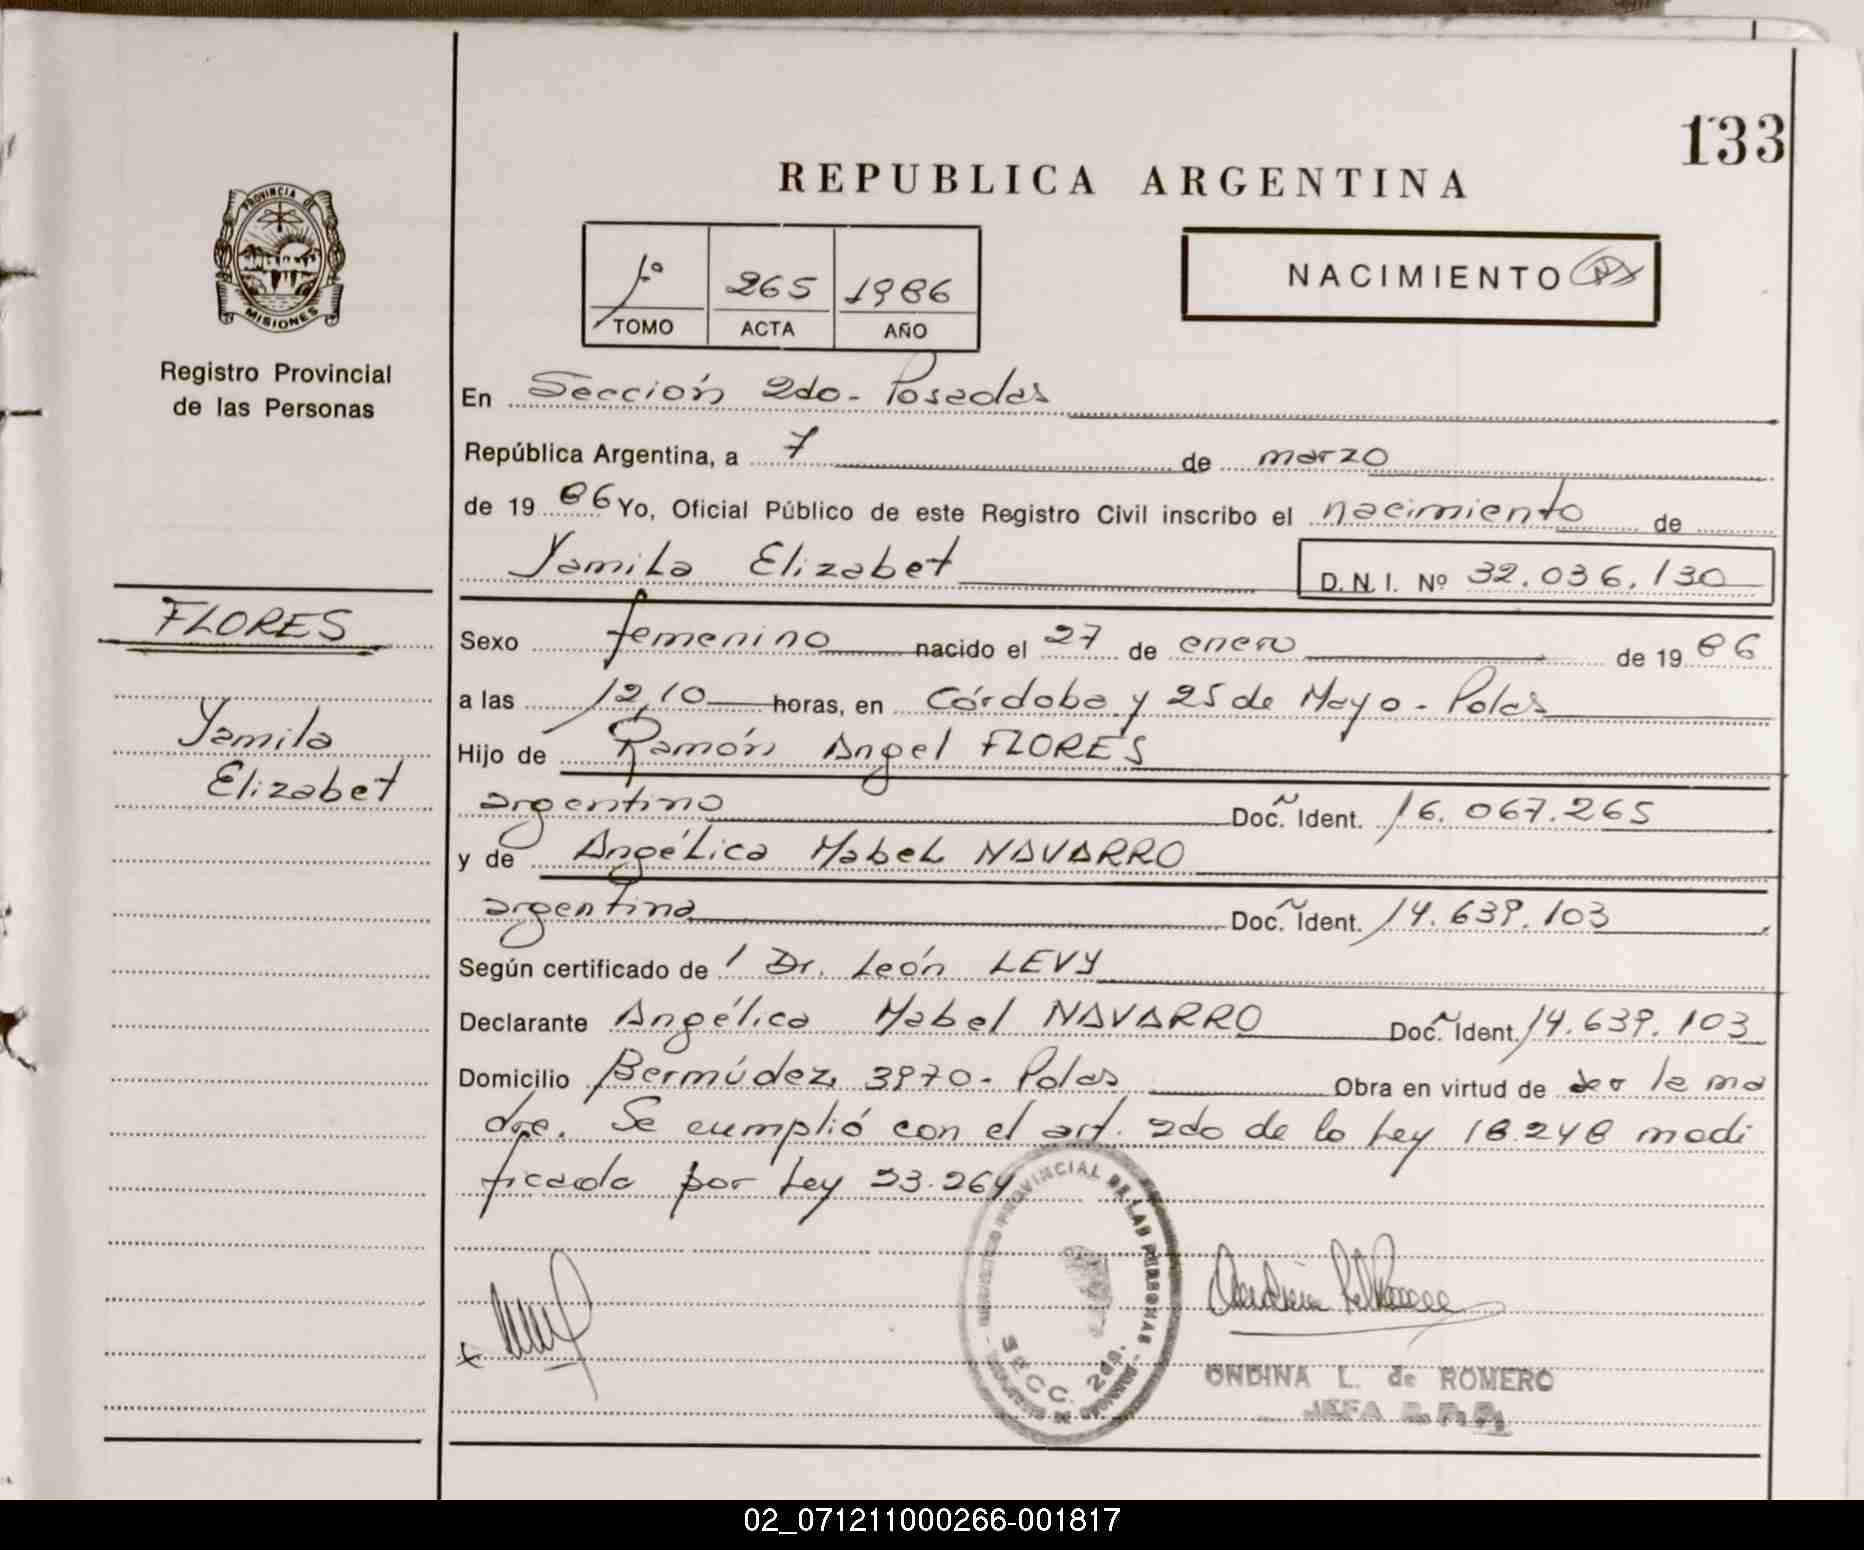 133
REPUBLICA ARGENTINA
PROVINCIA DE
MISIONES
Registro Provincial
de las Personas
1º 265 1986
TOMO ACTA AÑO
NACIMIENTO
En Sección 2do - Posadas
República Argentina, a 7 de marzo
de 19 86 Yo, Oficial Público de este Registro Civil inscribo el nacimiento de
Yamila Elizabet D.N.I. Nº 32.036.130
FLORES
Yamila
Elizabet
Sexo femenino nacido el 27 de enero de 19 86
a las 12,10 horas, en Córdoba y 25 de Mayo - Pdas
Hijo de Ramón Angel FLORES
argentino Doc. Ident. 16.067.265
y de Angélica Mabel NAVARRO
argentina Doc. Ident. 14.639.103
Según certificado de 1 Dr. León LEVY
Declarante Angélica Mabel NAVARRO Doc. Ident. 14.639.103
Domicilio Bermúdez 3970 - Pdas Obra en virtud de ser la ma
dre. Se cumplió con el art. 2do de la Ley 18.248 modi
ficada por Ley 23.264
PROVINCIAL DE LAS PERSONAS
SECC. 2da.
ONDINA L. de ROMERO
JEFA R. P. P.
02_071211000266-001817